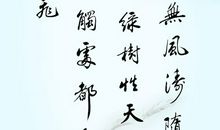 無風濤隨
綠樹性天
觸處都
飛